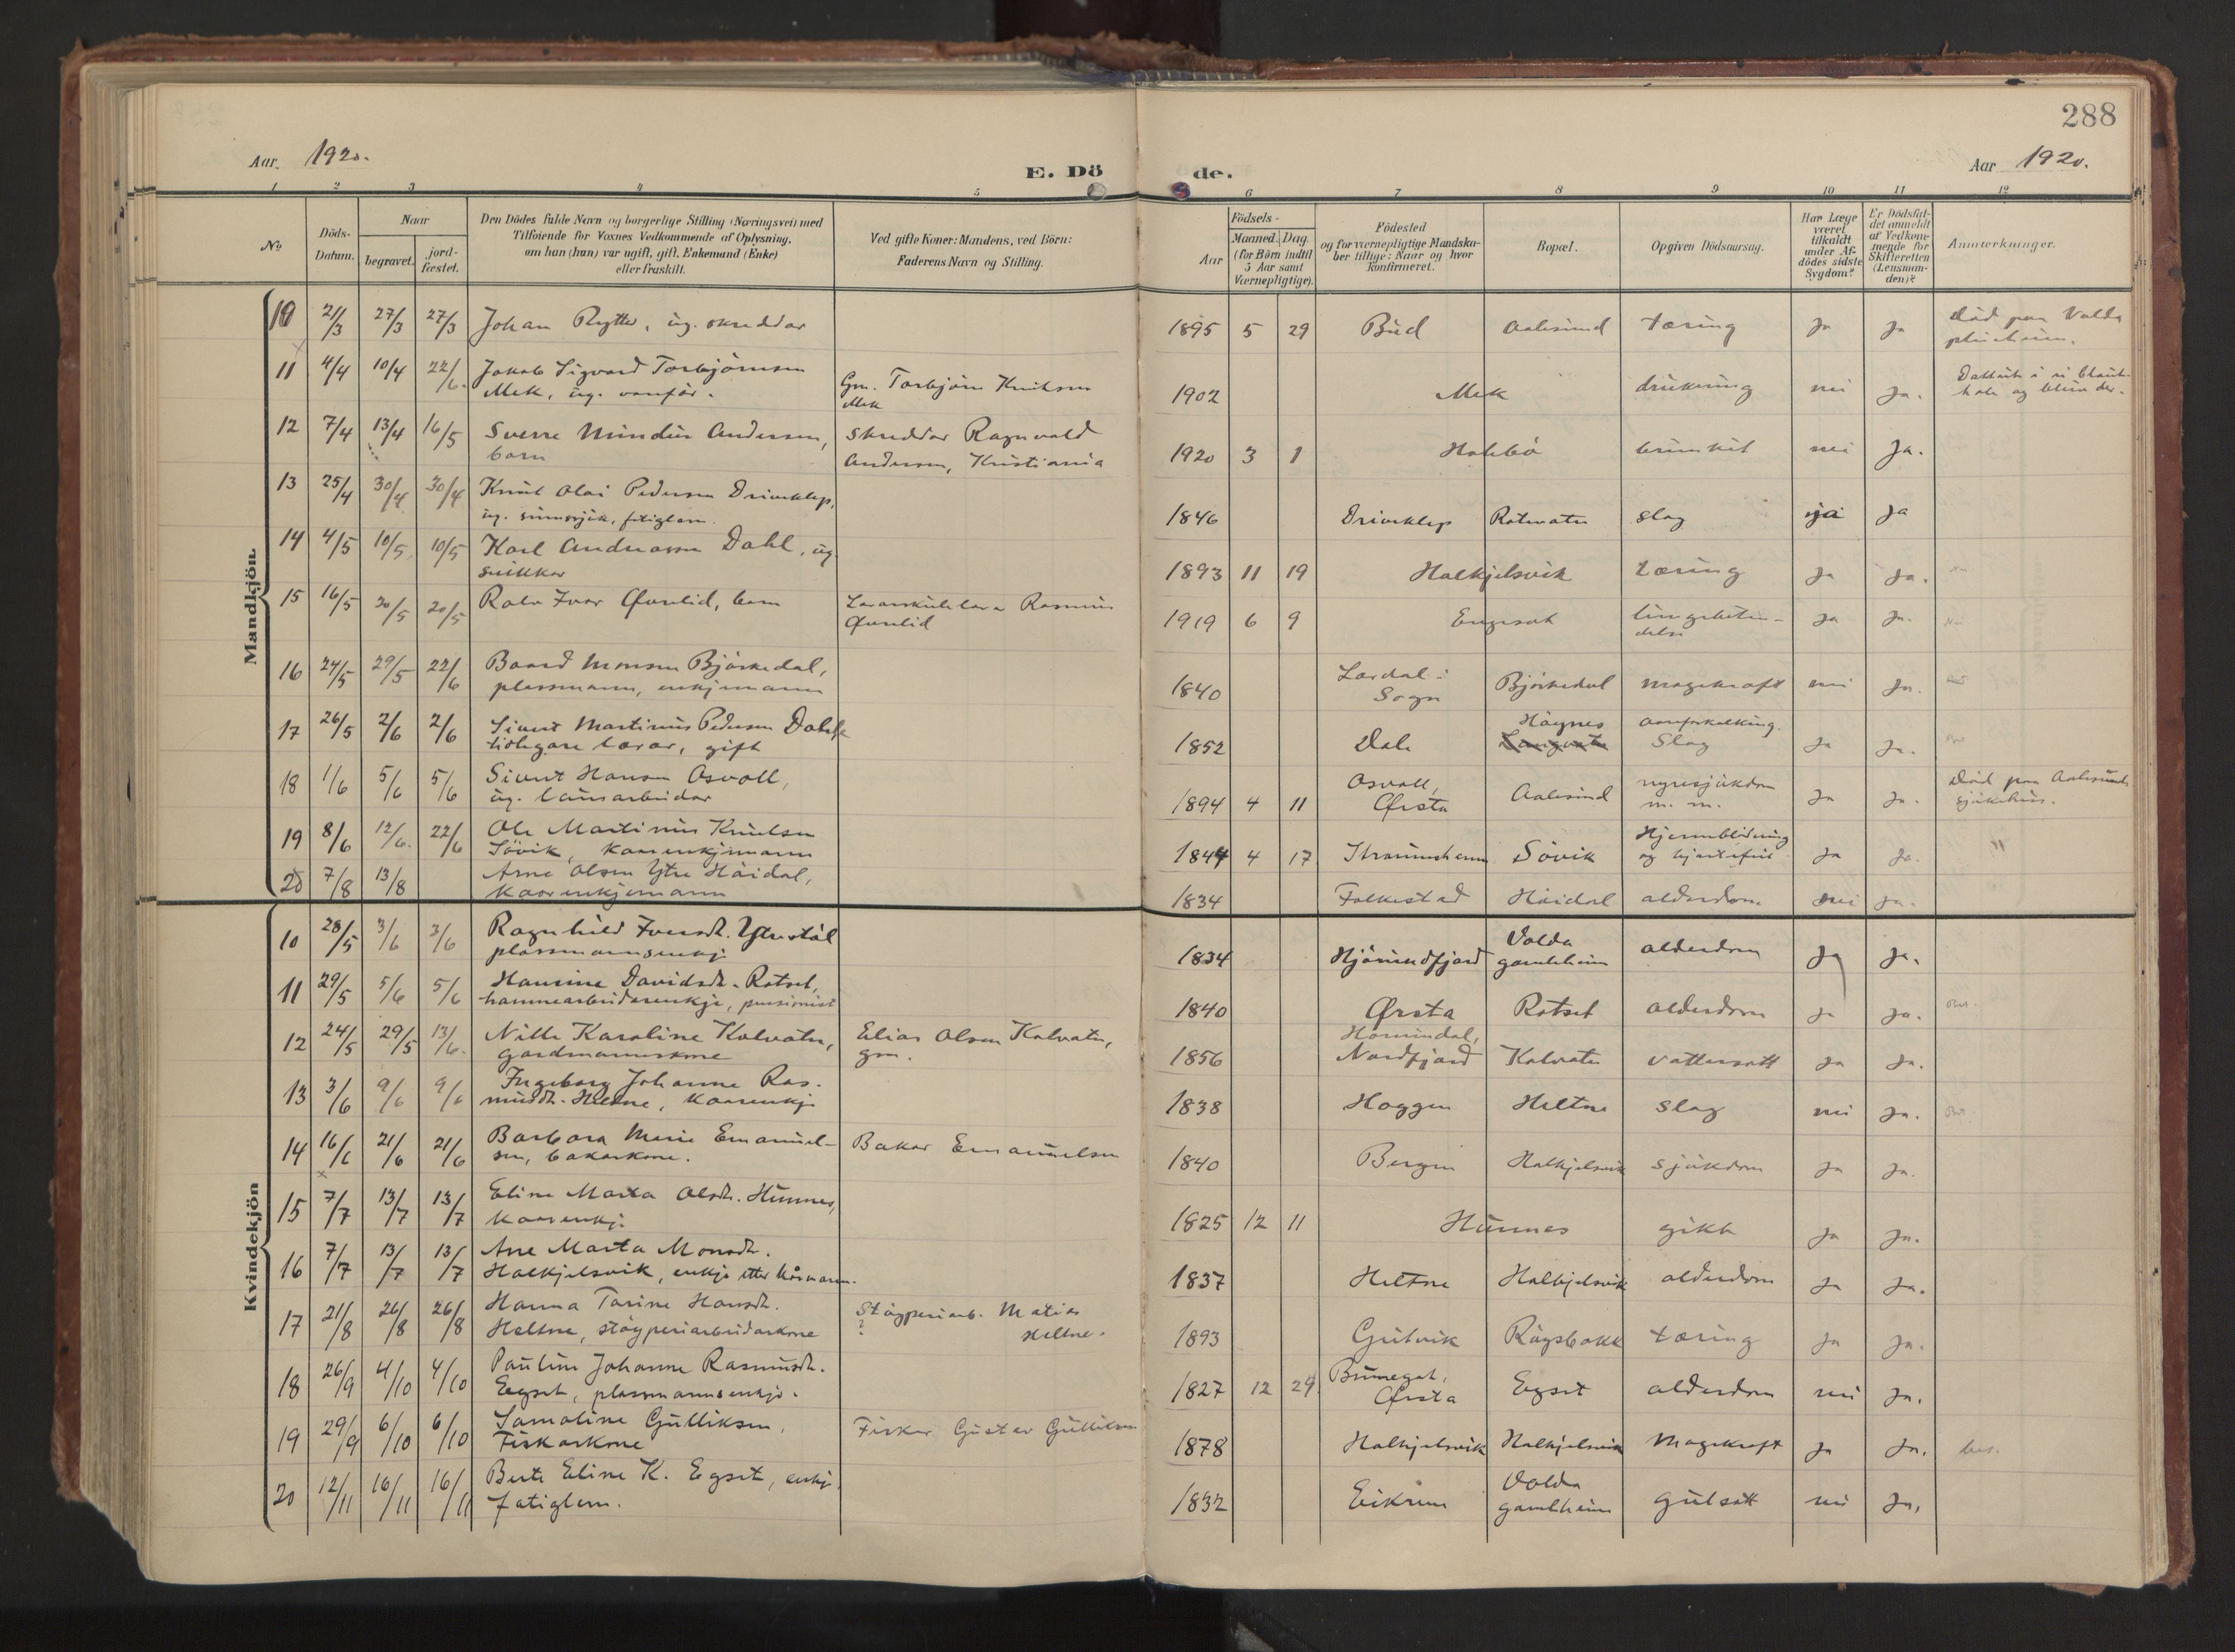 288
Aar 1920.
E. Dö
de.
Aar 1920.
1 2 3 4 5 6 7 8 9 10 11 12
No
Döds-
Datum.
Naar
begravet.
jord-
fæstet.
Den Dödes fulde Navn og borgerlige Stilling (Næringsvei) med
Tilföiende for Voxnes Vedkommende af Oplysning,
om han (hun) var ugift, gift, Enkemand (Enke)
eller fraskilt.
Ved gifte Koner: Mandens, ved Börn:
Faderens Navn og Stilling.
Födsels-
Aar
Maaned. Dag.
(for Börn indtil
5 Aar samt
Værnepligtige).
Födested
og for værnepligtige Mandska-
ber tillige: Naar og hvor
konfirmeret.
Bopæl.
Opgiven Dödsaarsag.
Har Læge
været
tilkaldt
under Af-
dödes sidste
Sygdom?
Er Dödsfal-
det anmeldt
af Vedkom-
mende for
Skifteretten
(Lensman-
den)?
Anmærkninger.
Mandkjön.
10 2/3 27/3 27/3 Johan Rytter, ug. skreddar
1895 5 29 Bud Aalesund tæring Ja Ja Död paa Volda
11 4/4 10/4 22/6. Jakob Sigvard Torbjörnsen
Mek, ug. vanför.
Gm. Torbjörn Knutsen
Mek
1902 Mek drukning nei Ja.
12 7/4 13/4 16/5 Sverre Mundus Andersen,
barn
Skreddar Ragnvald
Andersen, Kristiania
1920 3 1 nei Ja.
13 25/4 30/4 30/4 Knut Olai Pedersen Driveklep,
ug. sinnssjuk, fatiglem.
1846 Driveklep Rotevatn slag ja Ja
14 4/5 10/5 10/5 Karl Andreassen Dahl, ug.
snikkar
1893 11 19 Halkjelsvik tæring Ja Ja.
15 16/5 20/5 20/5 Rolv Ivar Øvrelid, barn
Lærarskulelærar Rasmus
Øvrelid
1919 6 9 Engeset lungebeten-
delse
Ja Ja.
16 24/5 29/5 22/6 Baard Monsen Björkedal,
plassmann, enkjemann
1840 Lærdal i
Sogn
Björkedal magekræft nei Ja.
17 26/5 2/6 2/6 Sivert Martinus Pedersen Dahle
tidlegare lærar, gift
1852 Dale Høgnes aareforkalking.
Slag
Ja Ja.
18 1/6 5/6 5/6 Sivert Hansen Osvoll,
ug. lausarbeidar
1894 4 11 Osvoll,
Ørsta
Aalesund nyresjukdom
m. m.
Ja Ja. Död paa Aalesunds
sjukehus.
19 8/6 12/6. 22/6 Ole Martinus Knutsen
Sövik, kaarenkjemann
1844 4 17 Straumsheim Sövik Hjerneblödning
og hjartefeil
Ja Ja.
20 7/8 13/8 Arne Olsen Ytre Höidal,
kaarenkjemann
1834 Folkestad Höidal alderdom nei Ja.
Kvindekjön
10 28/5 3/6 3/6 Ragnhild Iversdt. Ytrestöl
plassmannsenkje
1834 Hjörundfjord Volda
gamleheim
alderdom Ja Ja.
11 29/5 5/6 5/6 Hansine Davidsdt. Rotset,
hamnearbeidarenkje, pensionist
1840 Ørsta Rotset alderdom Ja Ja.
12 24/5 29/5 13/6. Nille Karoline Kalvatn,
gardmannskone
Elias Olsen Kalvatn,
gm.
1856 Hornindal,
Nordfjord
Kalvatn vattersott Ja Ja.
13 3/6 9/6 9/6 Ingeborg Johanne Ras-
musdt. Heltne, Kaarenkje
1838 Hoggen Heltne slag nei Ja.
14 16/6 21/6 21/6 Barbara Marie Emanuel-
sen, bakarkone.
Bakar Emanuelsen
1840 Bergen Halkjelsvik sjukdom Ja Ja.
15 7/7 13/7 13/7 Eline Marta Olsdt. Hunnes,
kaarenkje
1825 12 11 Hunnes gikt Ja Ja.
16 7/7 13/7 13/7 Ane Marta Monsdt.
Halkjelsvik, enkje etter kårmann.
1837 Heltne Halkjelsvik alderdom Ja Ja.
17 21/8 26/8 26/8 Hanna Tarine Hansdt.
Heltne, stöyperiarbeidarkone
Stöyperiarb. Matias
? Heltne.
1893 Gjutvik Röysbakk tæring Ja Ja.
18 26/9 4/10 4/10 Pauline Johanne Rasmusdt.
Egset, plassmannsenkje.
1827 12 29
Ørsta
Egset alderdom nei Ja.
19 29/9 6/10 6/10 Samoline Gulliksen,
Fiskarkone
Fiskar Gustav Gulliksen
1878 Halkjelsvik Halkjelsvik Magekræft Ja Ja.
20 12/11 16/11 16/11 Berte Eline K. Egset, enkje,
fatiglem.
1832 Eikrem Volda
gamleheim
gulsott nei Ja.